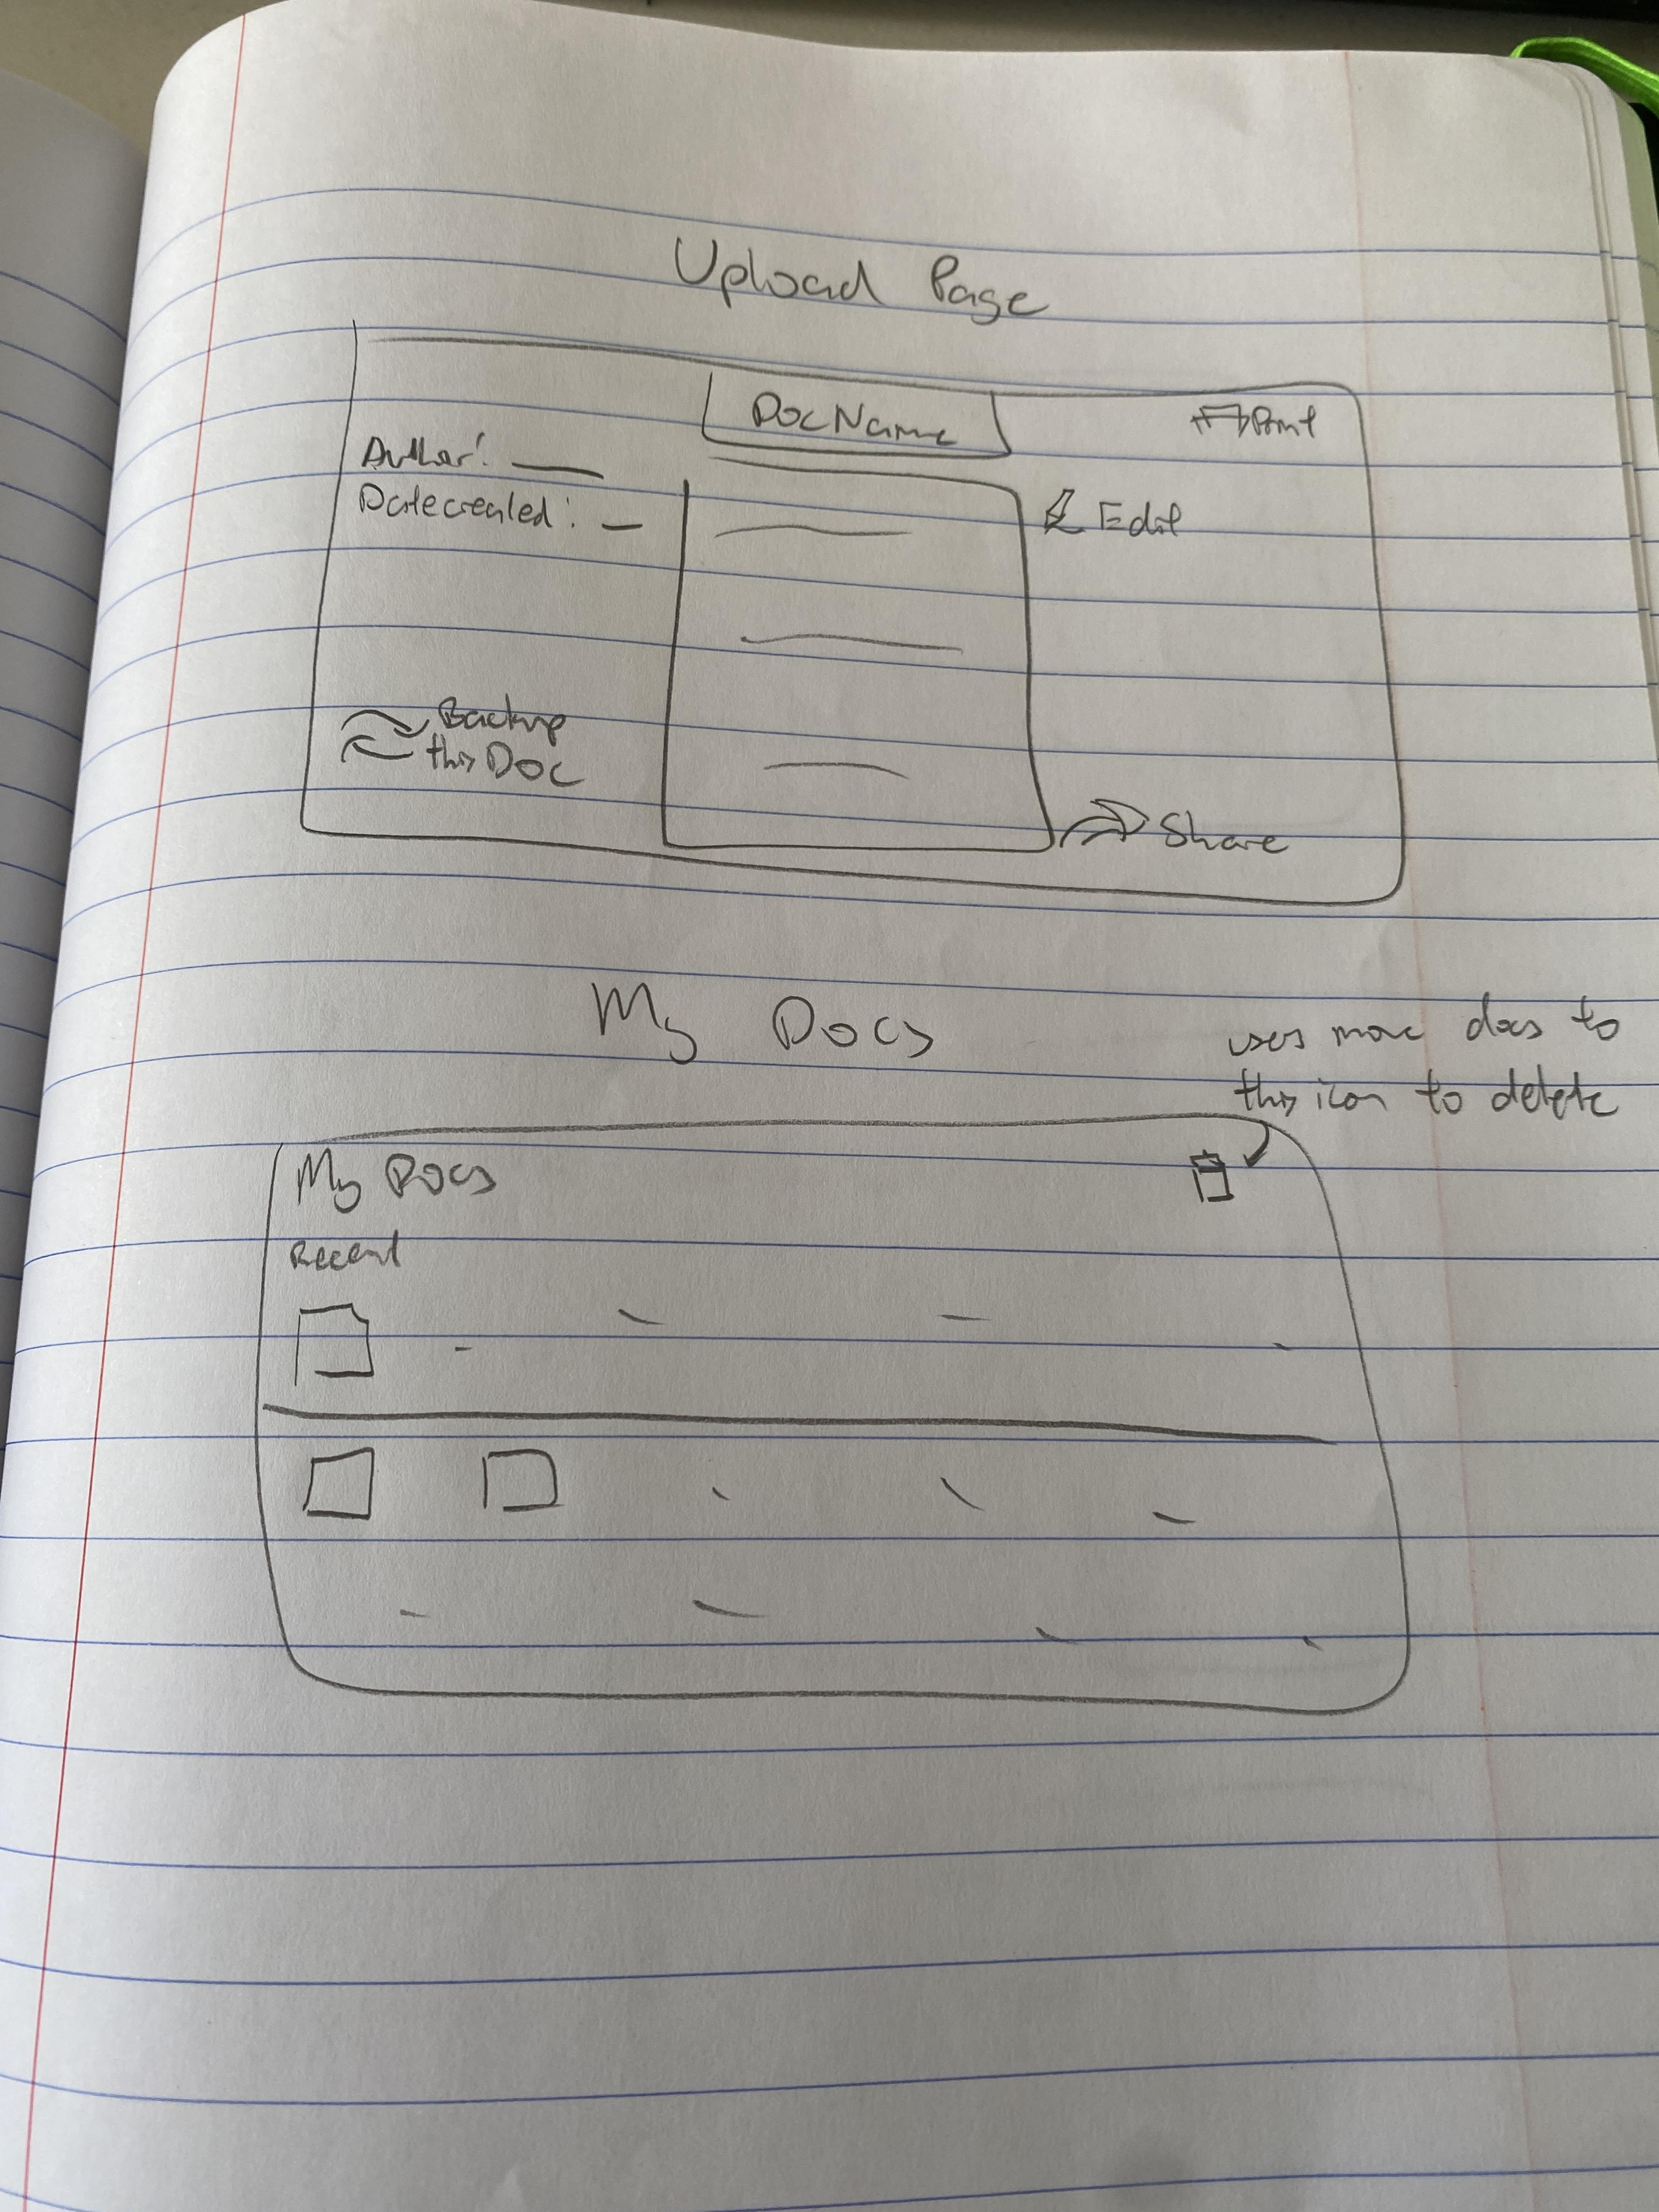 Upload Page
DocName
Print
Author:
Date created:
Edit
Backup
this Doc
Share
My Docs
users move docs to
this icon to delete
My Docs
Recent